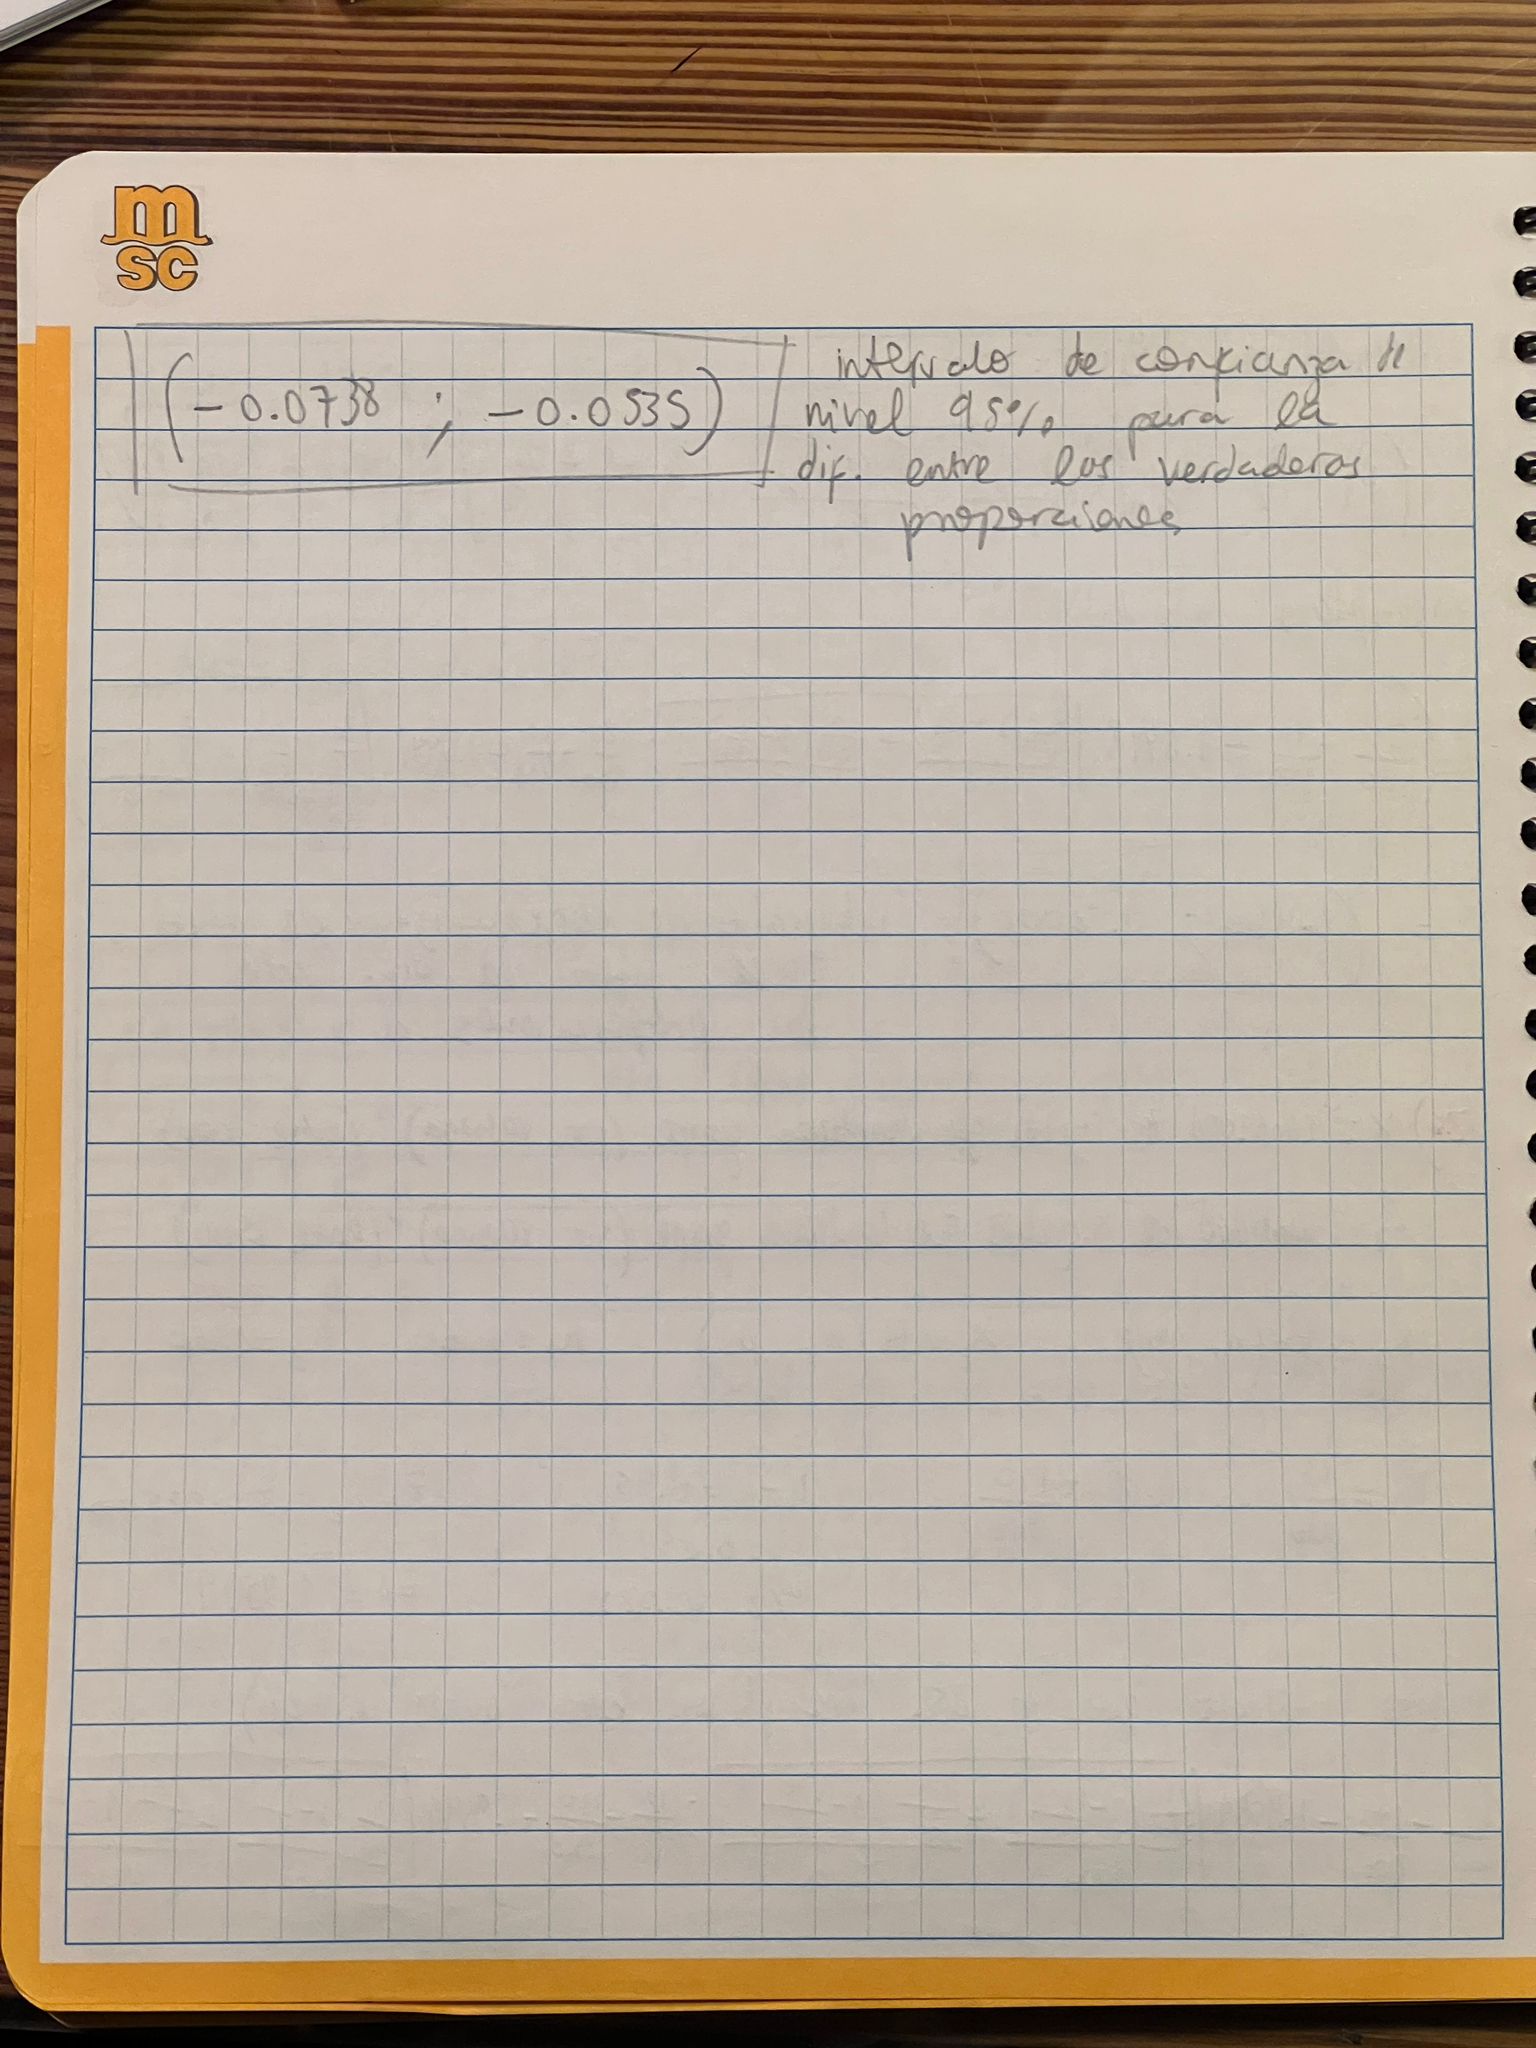 m
sc
(-0.0738 ; -0.0535)
intervalo de confianza de
nivel 95% para la
dif. entre las verdaderas
proporciones